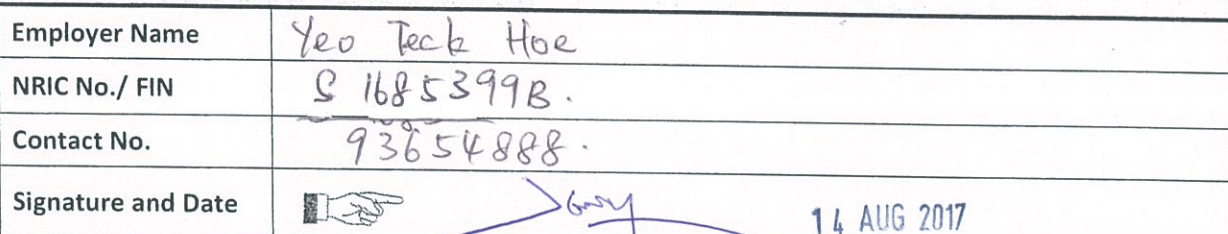 Employer Name Yeo Teck Hoe
NRIC No./ FIN S 1685399B.
Contact No. 93654888.
Signature and Date 14 AUG 2017